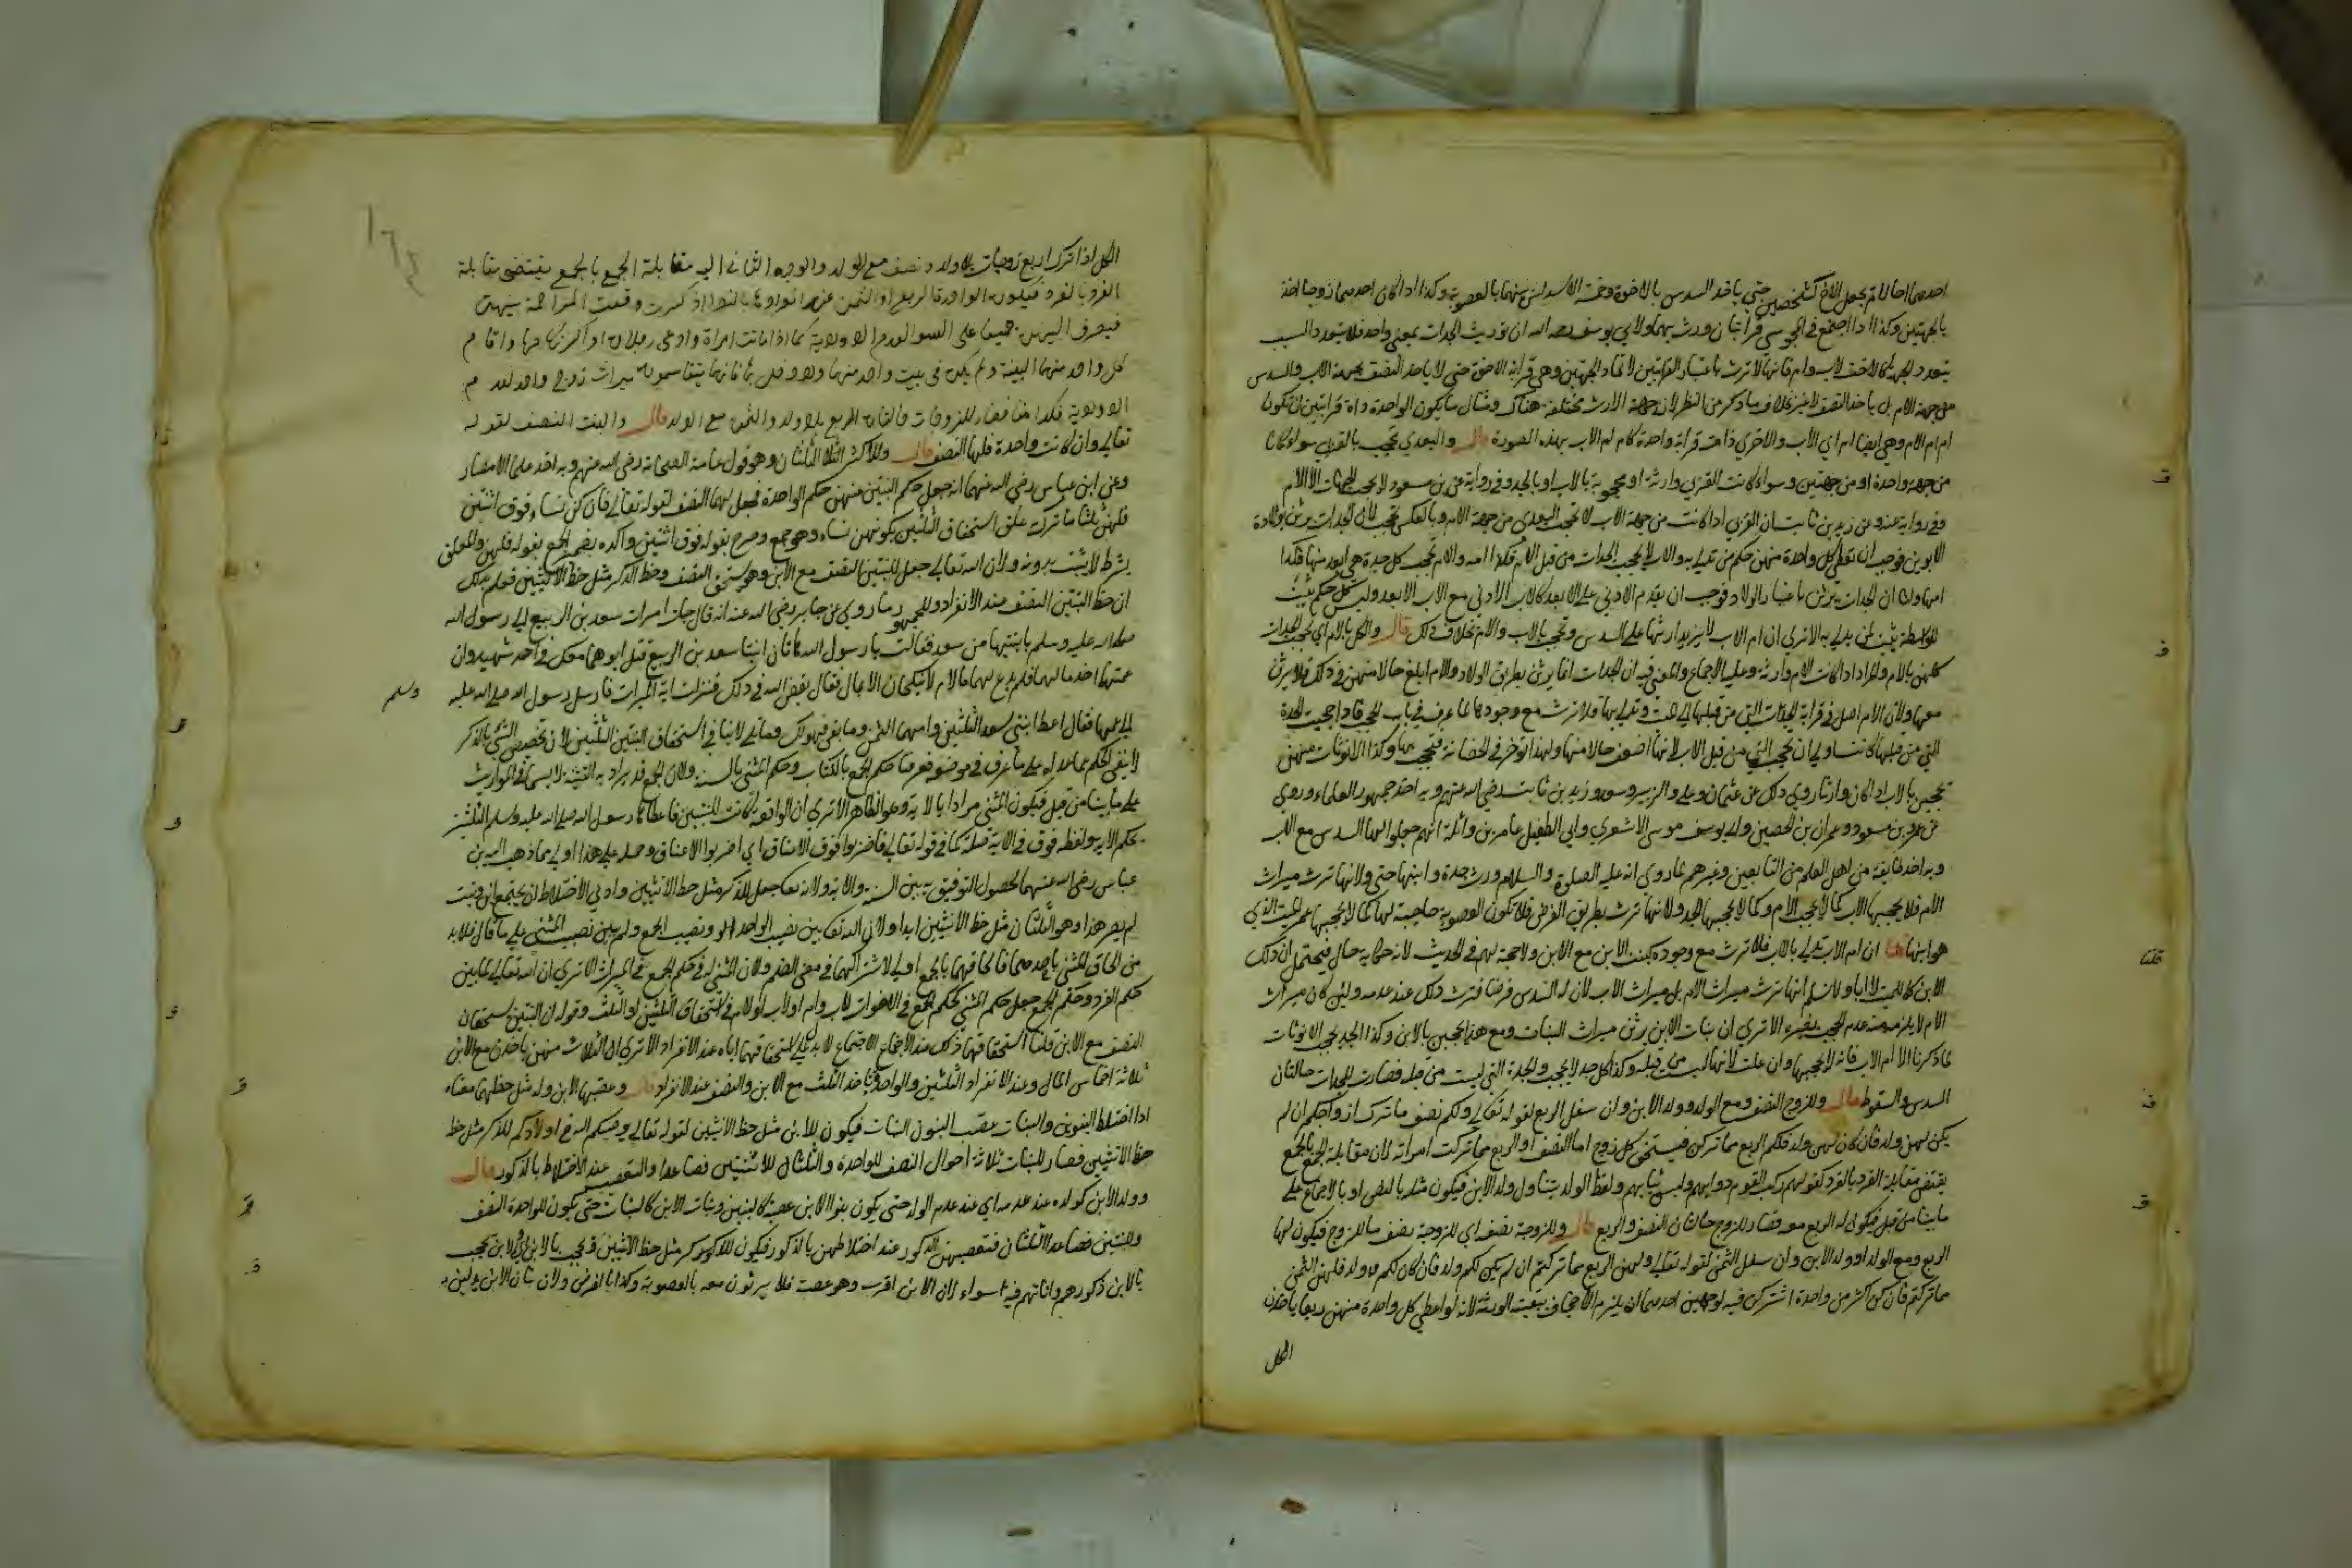 احدهما حالا لم يجعل الاثر كشخصين حتى ياخذ السدس بالاخوة وخمسة الاسداس منهما بالعصوبة وكذا اذا كان احدهما زوجا اخذ
بالجهتين وكذا اذا اجتمع في المجوسي قرابتان ورث بهما ولابي يوسف رحمه الله ان توريث الجدات بمعنى واحد فلا يتعدد السبب
بتعدد الجهة كالاخت لاب وام فانها لا ترث باعتبار القرابتين لاتحاد الجهتين وهي قرابة الاخوة حتى لا ياخذ النصف بجهة الاب والسدس
من جهة الام بل ياخذ النصف لا غير بخلاف ما ذكر من النظر لان جهة الارث مختلفة هناك ومثال ما يكون الواحدة ذاة قرابتين ان تكون
ام ام الام وهي ايضا ام اي الاب والاخرى ذات قرابة واحدة كام ام الاب بهذه الصورة قال والبعدى تحجب بالقربى سواء كانتا
من جهة واحدة او من جهتين وسواء كانت القربى وارثة او محجوبة بالاب او بالجد وفي رواية عن بن مسعود لا يحجب الجدات الا الام
وفي رواية عنه وعن زيد بن ثابت ان القربى اذا كانت من جهة الاب لا تحجب البعدى من جهة الام وبالعكس تحجب لان الجدات يرثن بولادة
الابوين فوجب ان تعطى كل واحدة منهن حكم من تدلي به والاب لا يحجب الجدات من قبل الام فكذا امه والام تحجب كل جدة هي ابعد منها فكذا
امها ولنا ان الجدات يرثن باعتبار الولاد فوجب ان يقدم الادنى على الابعد كالاب الادنى مع الاب الابعد وليس كل حكم يثبت
للواسطة يثبت لمن يدلي به الا ترى ان ام الاب لا يزيد ارثها على السدس وتحجب بالاب والام بخلاف ذلك قال والكل بالام اي تحجب الجدات
كلهن بالام والمراد اذا كانت الام وارثة وعليه الاجماع والمعنى فيه ان الجدات انما يرثن بطريق الولاد والام ابلغ حالا منهن في ذلك فلا يرثن
معها ولان الام اصل في قرابة الجدات التي من قبلها الى الميت وتدلي بها فلا ترث مع وجودها لما عرف في باب الحجب فاذا حجبت الجدة
التي من قبلها كانت اولى ان تحجب التي من قبل الاب لانها اضعف حالا منها ولهذا تؤخر في الحضانة فتحجب بها وكذا الابويات منهن
تحجبن بالاب اذا كان وارثا روي ذلك عن عثمان وعلي والزبير وسعد وزيد بن ثابت رضي الله عنهم وبه اخذ جمهور العلماء وروي
عن عمر وبن مسعود وعمران بن الحصين وابي يوسف موسى الاشعري وابي الطفيل عامر بن واثلة انهم جعلوا لها السدس مع الاب
وبه اخذ طايفة من اهل العلم من التابعين وغيرهم لما روي انه عليه الصلوة والسلام ورث جدة وابنها حي ولانها ترث ميراث
الام فلا يحجبها الاب كما لا يحجب الام وكما لا يحجبها الجد ولانها ترث بطريق الفرض فلا تكون العصوبة حاجبة لها كما لا يحجبها عم الميت الذي
هو ابنها قلنا ان ام الاب تدلي بالاب فلا ترث مع وجوده كبنت الابن مع الابن ولا حجة لهم في الحديث لانه حكاية حال فيحتمل ان ذلك
الابن كان للميت لا ابا ولا نسلم انها ترث ميراث الام بل ميراث الاب لان له السدس فرضا فترث ذلك عند عدمه ولئن كان ميراث
الام لا يلزم منه عدم الحجب بغيره الا ترى ان بنات الابن يرثن ميراث البنات ومع هذا يحجبن بالابن وكذا الجد يحجب الابويات
لما ذكرنا الا ام الاب فانه لا يحجبها وان علت لانها ليست من قبله وكذا كل جد لا يحجب الجدة التي ليست من قبله فصارت للجدات حالتان
السدس والسقوط قال وللزوج النصف ومع الولد وولد الابن وان سفل الربع لقوله تعالى ولكم نصف ما ترك ازواجكم ان لم
يكن لهن ولد فان كان لهن ولد فلكم الربع مما تركن فيستحق كل زوج اما النصف او الربع مما تركت امراته لان مقابلة الجمع بالجمع
يقتضي مقابلة الفرد بالفرد كقولهم ركب القوم دوابهم ولبسوا ثيابهم ولفظ الولد يتناول ولد الابن فيكون مثله بالنص او بالاجماع على
ما بينا من قبل فيكون له الربع معه فصار للزوج حالتان النصف والربع قال وللزوجة نصفه اي للزوجة نصف ما للزوج فيكون لها
الربع ومع الولد او ولد الابن وان سفل الثمن لقوله تعالى ولهن الربع مما تركتم ان لم يكن لكم ولد فان كان لكم ولد فلهن الثمن
مما تركتم فان كن اكثر من واحدة اشتركن فيه لوجهين احدهما ان يلزم الاجحاف ببقية الورثة لانه لو اعطي كل واحدة منهن ربعا ياخذن
الكل
ف
ف
قلنا
ف
ق
الكل اذا ترك اربع زوجات بلا ولد ونصفه مع الولد والوجه الثاني ان مقابلة الجمع بالجمع يقتضي مقابلة
الفرد بالفرد فيكون لواحدة الربع او الثمن عند انفرادها بالنص واذا كثرت وقعت المزاحمة بينهن
فيصرف اليهن جميعا على السواء لعدم الاولوية كما اذا ماتت امراة وادعى رجلان او اكثر نكاحها واقام
كل واحد منهما البينة ولم يكن في بيت واحد منهما ولا دخل بها فانهما يتقاسمون ميراث زوج واحد لعدم
الاولوية فكذا هنا فصار للزوجات حالتان الربع بلا ولد والثمن مع الولد قال والبنت النصف لقوله
تعالى وان كانت واحدة فلها النصف قال وللاكثر الثلثان وهو قول عامة الصحابة رضي الله عنهم وبه اخذ علماء الامصار
وعن ابن عباس رضي الله عنهما انه جعل حكم البنتين منهن حكم الواحدة فجعل لهما النصف لقوله تعالى فان كن نساء فوق اثنتين
فلهن ثلثا ما ترك علق استحقاق الثلثين بكونهن نساء وهو جمع وصرح بقوله فوق اثنتين واكده بضمير الجمع بقوله فلهن والمعلق
بشرط لا يثبت بدونه ولان الله تعالى جعل للبنتين النصف مع الابن وهو يستحق النصف وحظ الذكر مثل حظ الانثيين فعلم بذلك
ان حظ البنتين النصف عند الانفراد وللجمهور ما روي عن جابر رضي الله عنه انه قال جات امرات سعد بن الربيع الى رسول الله
صلى الله عليه وسلم بابنتيها من سعد فقالت يا رسول الله هاتان ابنتا سعد بن الربيع قتل ابوهما معك في احد شهيدا وان
عمهما اخذ مالهما فلم يدع لهما مالا ولا ينكحان الا بمال فقال يقضي الله في ذلك فنزلت اية الميراث فارسل رسول الله صلى الله عليه
وسلم
الى عمهما فقال اعط ابنتي سعد الثلثين وامهما الثمن وما بقي فهو لك وما تلي لا ينافي استحقاق البنتين الثلثين لان تخصيص الشي بالذكر
لا ينفي الحكم عما عداه على ما عرف في موضعه فعرفنا حكم الجمع بالكتاب وحكم المثنى بالسنة ولان الجمع قد يراد به التثنية لا سيما في المواريث
على ما بينا من قبل فيكون المثنى مرادا بالاية وهو الظاهر الا ترى ان الواقعة كانت للبنتين فاعطاهما رسول الله صلى الله عليه وسلم الثلثين
بحكم الاية ولفظة فوق في الاية صلة كما في قوله تعالى فاضربوا فوق الاعناق اي اضربوا الاعناق وحمله على هذا اولى مما ذهب اليه بن
عباس رضي الله عنهما لحصول التوفيق به بين السنة والاية ولانه تعالى جعل للذكر مثل حظ الانثيين وادنى الاختلاط ان يجتمع ابن وبنت
لم يصر هذا وهو الثلثان مثل حظ الانثيين ابدا ولان الله تعالى بين نصيب الواحدة ونصيب الجمع ولم يبين نصيب المثنى على ما قال فلا بد
من الحاق المثنى باحدهما فالحاقهما بالجمع اولى لاشتراكهما في معنى الضم ولان المثنى له حكم الجمع في الميراث الا ترى ان الله تعالى لما بين
حكم الفرد وحكم الجمع جعل حكم المثنى كحكم الجمع في الاخوات لاب وام او لاب او لام في استحقاق الثلثين او الثلث وقوله ان البنتين تستحقان
النصف مع الابن قلنا استحقاقهما ذلك عند الاجتماع لا يدل على استحقاقهما اياه عند الانفراد الا ترى ان الثلاث منهن ياخذن مع الابن
ثلاثة اخماس المال وعند الانفراد الثلثين والواحدة تاخذ الثلث مع الابن والنصف عند الانفراد قال وعصبها الابن وله مثل حظهما معناه
اذا اختلط البنون والبنات عصب البنون البنات فيكون للابن مثل حظ الانثيين لقوله تعالى يوصيكم الله في اولادكم للذكر مثل حظ
حظ الانثيين فصار للبنات ثلاثة احوال النصف للواحدة والثلثان للاثنتين فصاعدا والتعصيب عند الاختلاط بالذكور قال
وولد الابن كولده عند عدمه اي عند عدم الولد حتى يكون بنو الابن عصبة كالبنين وبنات الابن كالبنات حتى يكون للواحدة النصف
وللبنتين فصاعدا الثلثان فتعصبهن الذكور عند اختلاطهن بالذكور فيكون للذكر مثل حظ الانثيين قال ويحجب بالابن اي ولد الابن يحجب
بالابن ذكورهم واناثهم فيه سواء لان الابن اقرب وهو عصبة فلا يرثون معه بالعصوبة وكذا بالفرض ولان بنات الابن يدلين به